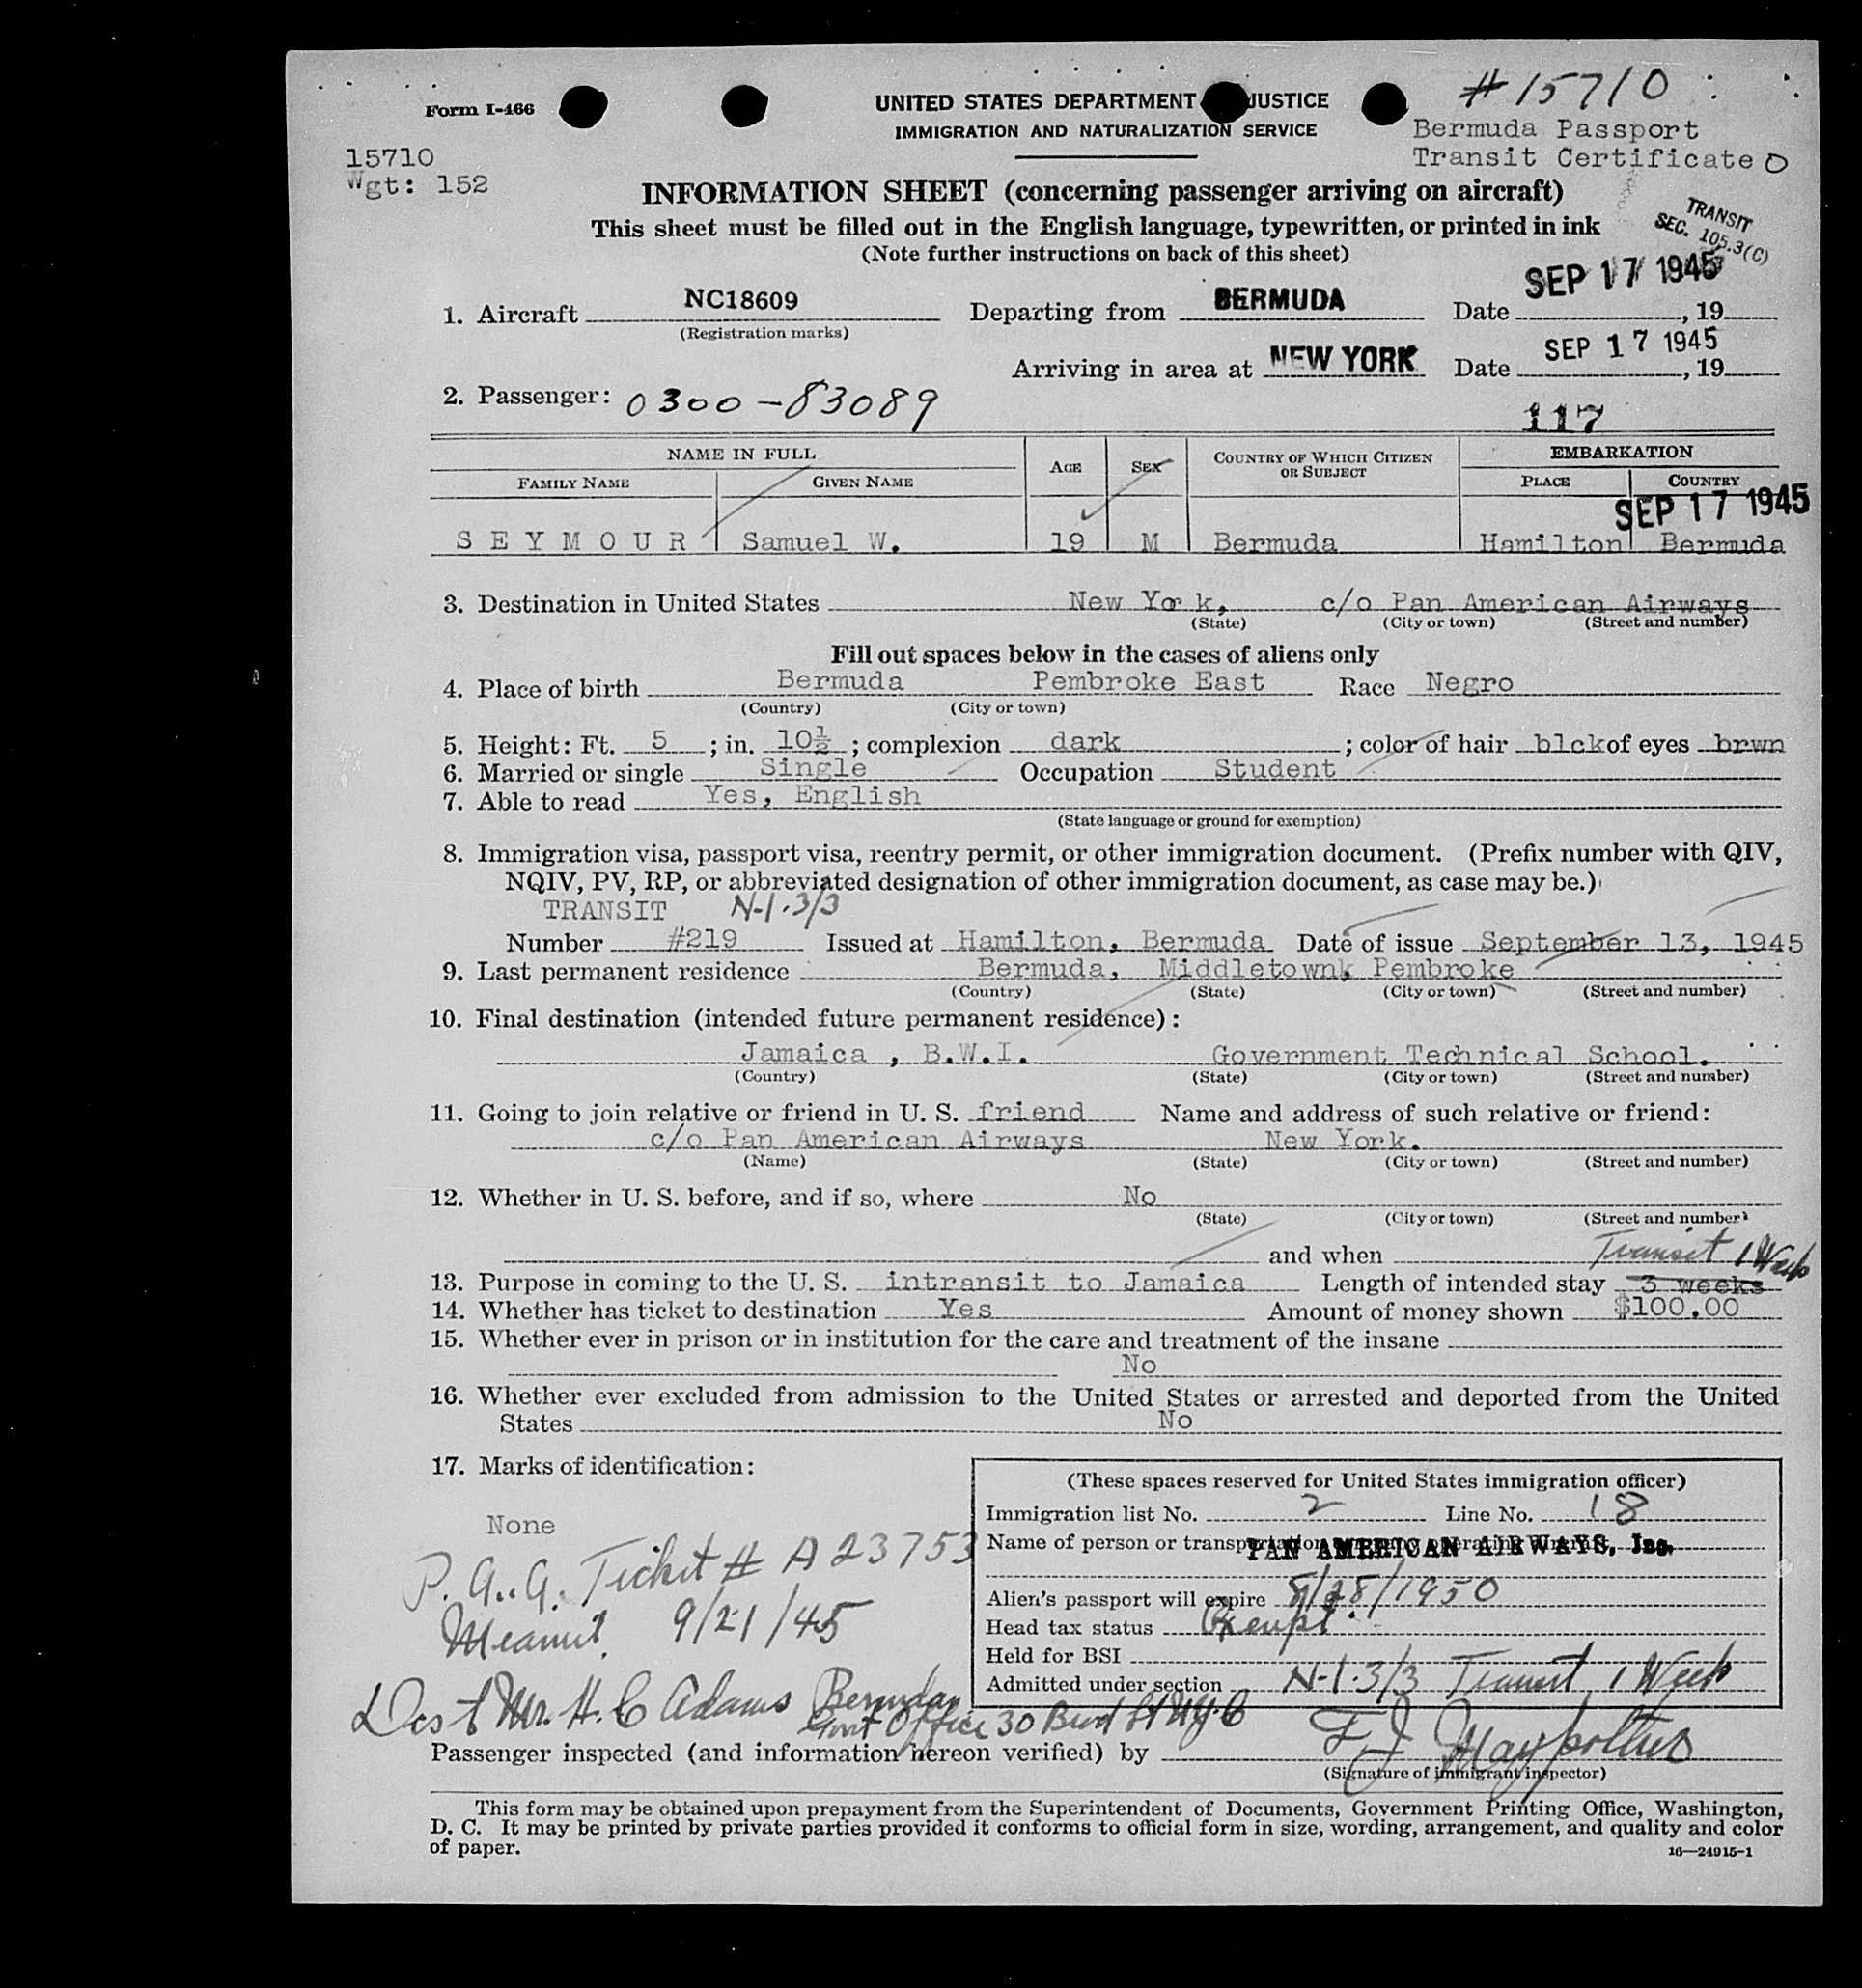 Form I-466
UNITED STATES DEPARTMENT JUSTICE
IMMIGRATION AND NATURALIZATION SERVICE
#15710
Bermuda Passport
Transit Certificate
15710
Wgt: 152
INFORMATION SHEET (concerning passenger arriving on aircraft)
This sheet must be filled out in the English language, typewritten, or printed in ink
(Note further instructions on back of this sheet)
TRANSIT
SEC. 105.3(C)
1. Aircraft NC18609 Departing from BERMUDA Date SEP 17 1945, 19
(Registration marks)
Arriving in area at NEW YORK Date SEP 17 1945, 19
2. Passenger: 0300-83089
117
NAME IN FULL AGE SEX COUNTRY OF WHICH CITIZEN OR SUBJECT EMBARKATION
FAMILY NAME GIVEN NAME PLACE COUNTRY
SEP 17 1945
S E Y M O U R Samuel W. 19 M Bermuda Hamilton Bermuda
3. Destination in United States New Yo k, c/o Pan American Airways
(State) (City or town) (Street and number)
Fill out spaces below in the cases of aliens only
4. Place of birth Bermuda Pembroke East Race Negro
(Country) (City or town)
5. Height: Ft. 5 ; in. 10½ ; complexion dark ; color of hair blck of eyes brwn
6. Married or single Single Occupation Student
7. Able to read Yes, English
(State language or ground for exemption)
8. Immigration visa, passport visa, reentry permit, or other immigration document. (Prefix number with QIV,
NQIV, PV, RP, or abbreviated designation of other immigration document, as case may be.)
TRANSIT N-1.3/3
Number #219 Issued at Hamilton, Bermuda Date of issue September 13, 1945
9. Last permanent residence Bermuda, Middletown, Pembroke
(Country) (State) (City or town) (Street and number)
10. Final destination (intended future permanent residence):
Jamaica , B.W.I. Government Technical School.
(Country) (State) (City or town) (Street and number)
11. Going to join relative or friend in U. S. friend Name and address of such relative or friend:
c/o Pan American Airways New York.
(Name) (State) (City or town) (Street and number)
12. Whether in U. S. before, and if so, where No
(State) (City or town) (Street and number)
and when Transit 1 Week
13. Purpose in coming to the U. S. intransit to Jamaica Length of intended stay 3 weeks
14. Whether has ticket to destination Yes Amount of money shown $100.00
15. Whether ever in prison or in institution for the care and treatment of the insane
No
16. Whether ever excluded from admission to the United States or arrested and deported from the United
States No
17. Marks of identification:
None
P.A.A. Ticket # A23753
9/21/45
Dest Mr. H. C Adams Bermudan
Govt Office 30 Brod St NYC
(These spaces reserved for United States immigration officer)
Immigration list No. 2 Line No. 18
Name of person or transportation PAN AMERICAN AIRWAYS, Inc.
Alien's passport will expire 8/28/1950
Head tax status Exempt.
Held for BSI
Admitted under section N-1.3/3 Transit 1 Week
Passenger inspected (and information hereon verified) by
(Signature of immigrant inspector)
This form may be obtained upon prepayment from the Superintendent of Documents, Government Printing Office, Washington,
D. C. It may be printed by private parties provided it conforms to official form in size, wording, arrangement, and quality and color
of paper.
16—24915-1